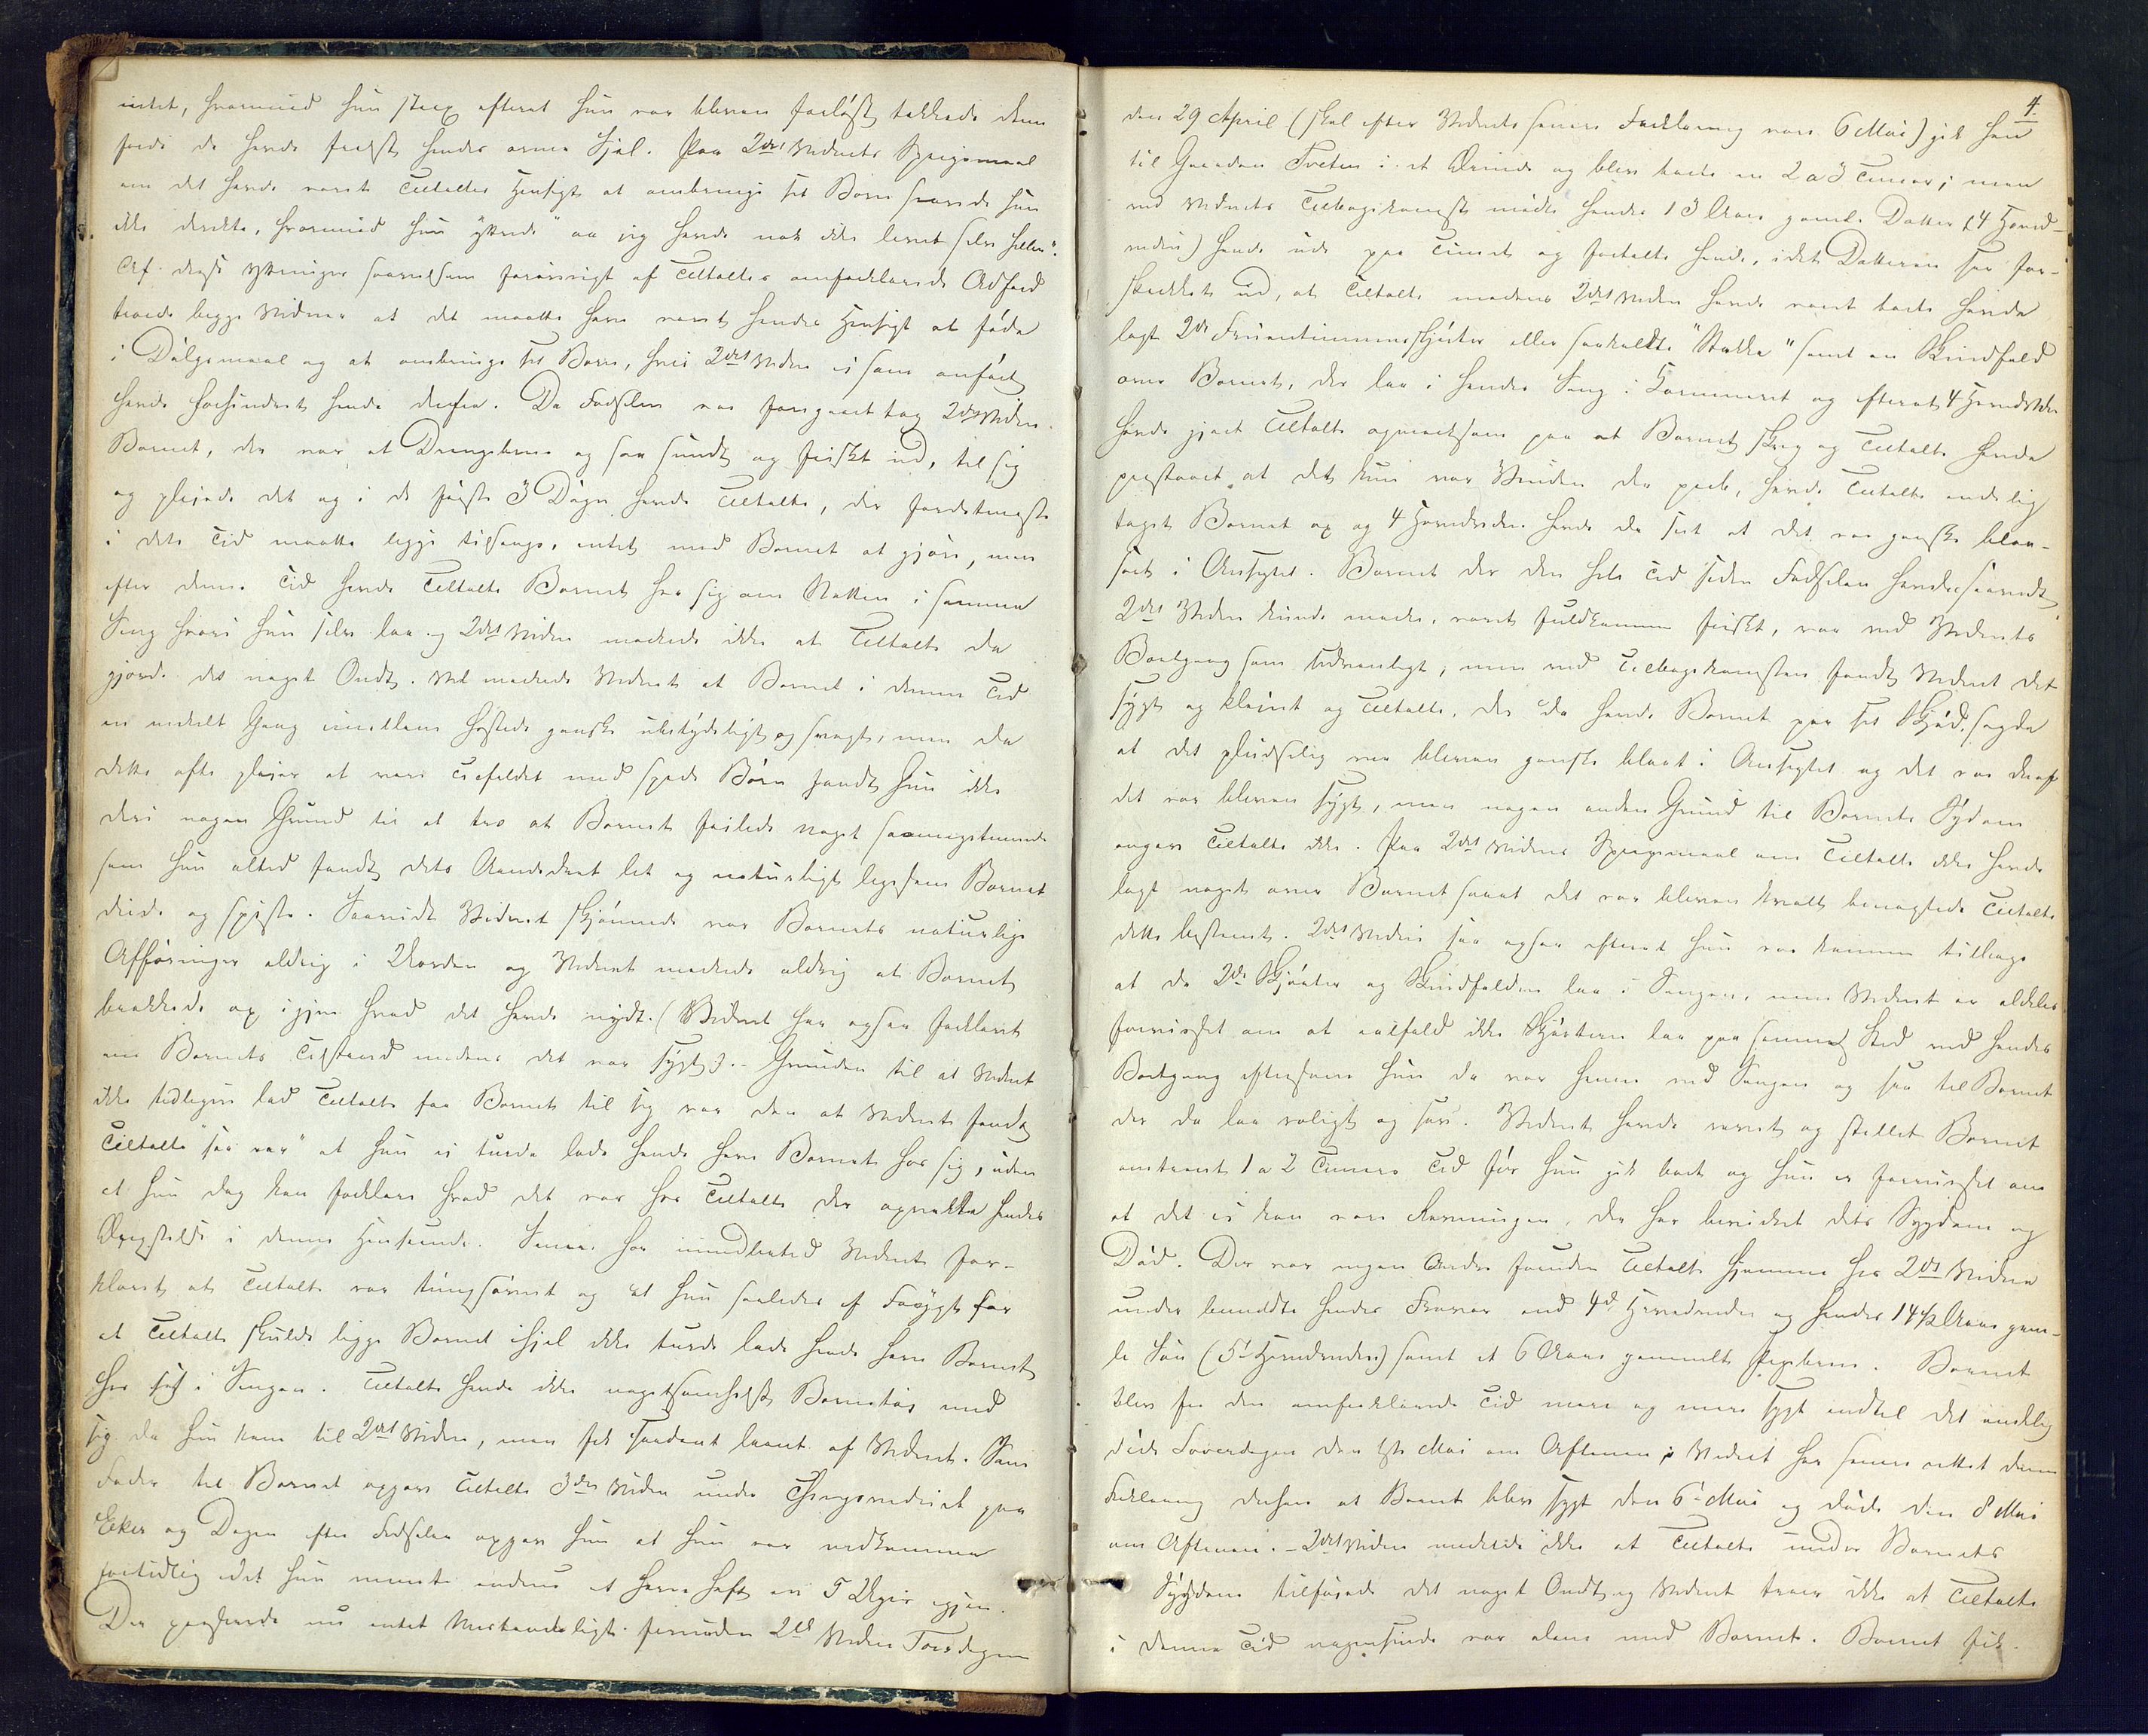 intet, hvormed hun strax efterat hun var bleven forløst takkede dem
fordi de havde frelst hendes arme Sjæl. Paa 2det Vidnets Spørgsmaal
om det havde været Tiltaltes Hensigt at ombringe sit Barn svarede hun
ikke direkte, hvormed hun ytrede "aa jeg havde nok ikke levet selv heller".
Af disse Ytringer saavelsom forøvrigt af Tiltaltes omforklarede Adfærd
troede begge Vidner at det maatte have været hendes Hensigt at føde
i Dølgsmaal og at ombringe sit Barn, hvis 2det Vidne ei som anført
havde forhindret hende derfra. Da Fødselen var foregaaet tog 2det Vidne
Barnet, der var et Drengebarn og saa sundt og friskt ud, til sig
og pleiede det og i de første 3 Døgn havde Tiltalte, der fordetmeste
i dette Tid maatte ligge tilsengs, intet med Barnet at gjøre, men
efter denne Tid havde Tiltalte Barnet hos sig om Natten i samme
Seng hvori hun selv laa og 2det Vidne mærkede ikke at Tiltalte da
gjorde det noget Ondt. Vel mærkede Vidnet at Barnet i denne Tid
en enkelt Gang imellem hostede ganske ubetydeligt og svagt, men da
dette ofte pleier at være Tilfældet med spæde Børn fandt hun ikke
deri nogen Grund til at tro at Barnet feilede noget saameget mindre
som hun altid fandt dets Aandedræt let og naturligt ligesom Barnet
diede og spiste. Saavidt Vidnet skjønnede var Barnets naturlige
Afføringer aldrig i Uorden og Vidnet mærkede aldrig at Barnet
brækkede op igjen hvad det havde nydt. (Vidnet har ogsaa forklaret
om Barnets Tilstand medens det var sygt). - Grunden til at Vidnet
ikke tidligere lod Tiltalte faa Barnet til sig var den at Vidnet fandt
Tiltalte "saa rar" at hun ei turde lade hende have Barnet hos sig, uden
at hun dog kan forklare hvad det var hos Tiltalte der opvakte hendes
Ængstelse i denne Henseende. Senere har imidlertid Vidnet for-
klaret at Tiltalte var tungsøvnet og at hun saaledes af Frygt for
at Tiltalte skulde ligge Barnet ihjel ikke turde lade hende have Barnet
hos sig i Sengen. Tiltalte havde ikke nogetsomhelst Barnetøi med
sig da hun kom til 2det Vidne, men fik saadant laant af Vidnet. Som
Fader til Barnet opgav Tiltalte 3die Vidne under Thingsvidnet paa
Eker og Dagen efter Fødselen opgav hun at hun var nedkommen
fortidlig idet hun mente endnu at have havt en 5 Uger igjen.
Der passerede nu intet Mistænkeligt forinden 2det Vidne Torsdagen
4.
den 29 April (skal efter Vidnets senere Forklaring være 6 Mai) gik hen
til Gaarden Tveten i et Ærinde og blev borte en 2 a 3 Timer; men
ved Vidnets Tilbagekomst mødte hendes 13 Aar gamle Datter (4 Hoved-
vidne) hende ude paa Tunet og fortalte hende, idet Datteren saa for-
skrækket ud, at Tiltalte medens 2det Vidne havde været borte havde
lagt 2de Fruentimmerskjørter eller saakaldte "Stakke" samt en Skindfeld
over Barnet, der laa i hendes Seng i Kammeret og efterat 4 Hovedvidne
havde gjort Tiltalte opmærksom paa at Barnet skreg og Tiltalte havde
paastaaet at det kun var Vinden der peeb, havde Tiltalte endelig
taget Barnet op og 4 Hovedvidne havde da seet at det var ganske blaa-
sort i Ansigtet. Barnet der den hele Tid siden Fødselen havde, saavidt
2det Vidne kunde mærke, været fuldkommen friskt, var ved Vidnets
Bortgang som sædvanligt, men ved Tilbagekomsten fandt Vidnet det
sygt og kleint og Tiltalte, der da havde Barnet paa sit Skjød, sagde
at det pludselig var bleven ganske blaat i Ansigtet og det var deraf
det var bleven sygt, men nogen anden Grund til Barnets Sygdom
angav Tiltalte ikke. Paa 2det Vidnes Spørgsmaal om Tiltalte ikke havde
lagt noget over Barnet saaat det var bleven kvalt benægtede Tiltalte
dette bestemt. 2det Vidne saa ogsaa efterat hun var kommen tilbage
at de 2de Skjørter og Skindfelden laa i Sengen, men Vidnet er aldeles
forvisset om at ialfald ikke Skjørterne laa paa samme Sted ved hendes
Bortgang eftersom hun da var henne ved Sengen og saa til Barnet
der da laa roligt og sov. Vidnet havde vasket og stellet Barnet
omtrent 1 a 2 Timers Tid før hun gik bort og hun er forvisset om
at det ei kan være Reivningen, der har bevirket dets Sygdom og
Død. Der var ingen Andre foruden Tiltalte hjemme hos 2det Vidne
under bemeldte hendes Fravær end 4de Hovedvidne og hendes 14½ Aar gam-
le Søn (5te Hovedvidne) samt et 6 Aar gammelt Pigebarn. Barnet
blev fra den omforklarede Tid mere og mere sygt indtil det endelig
døde Løverdagen den 1ste Mai om Aftenen; Vidnet har senere rettet denne
Forklaring derhen at Barnet blev sygt den 6te Mai og døde den 8 Mai
om Aftenen. - 2det Vidne mærkede ikke at Tiltalte under Barnets
Sygdom tilføiede det noget Ondt og Vidnet troer ikke at Tiltalte
i denne Tid nogensinde var alene med Barnet. Barnet fik